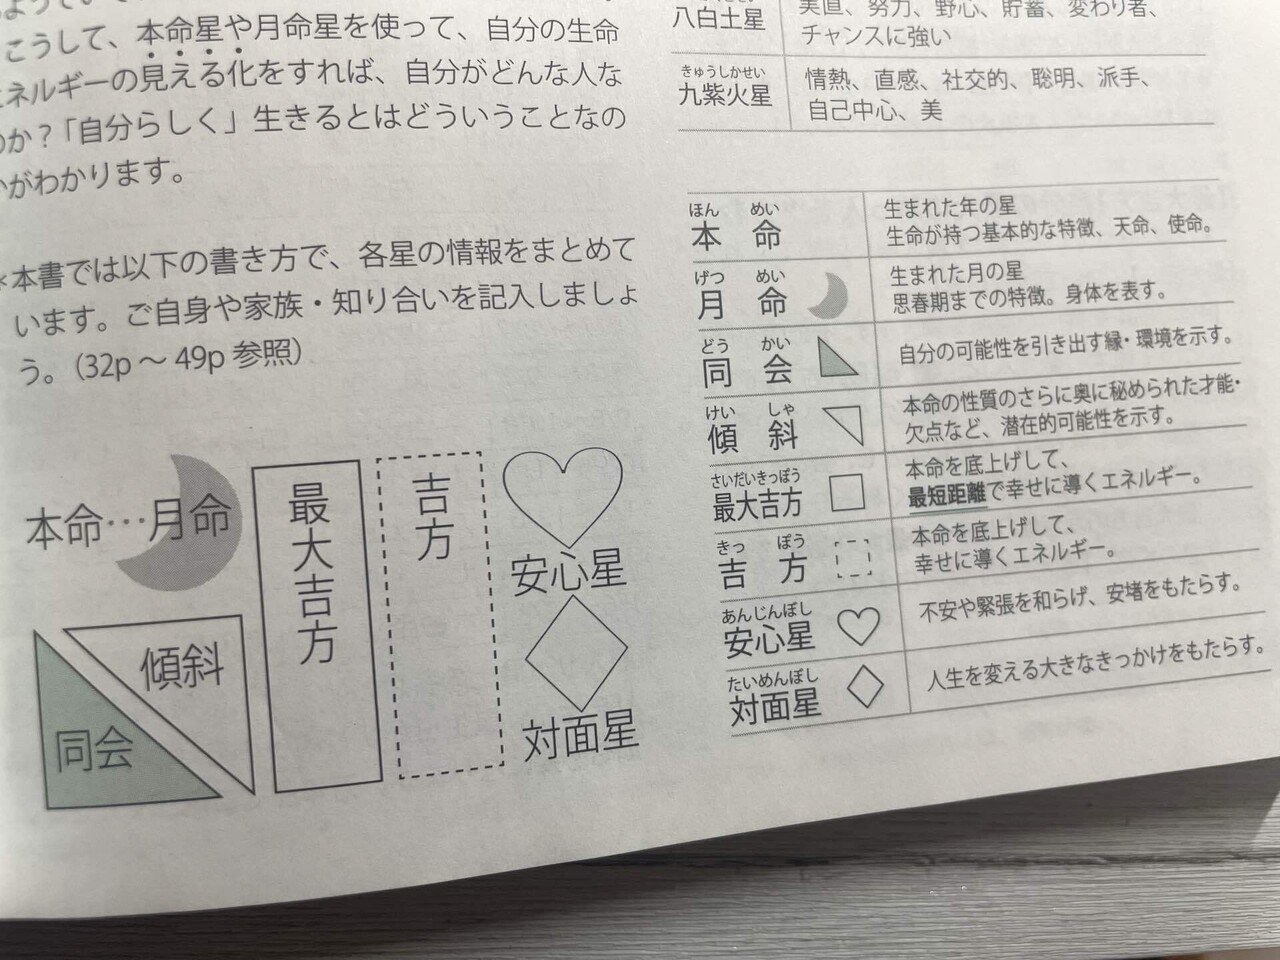 こうして、本命星や月命星を使って、自分の生命
エネルギーの見える化をすれば、自分がどんな人な
のか？「自分らしく」生きるとはどういうことなの
かがわかります。
*本書では以下の書き方で、各星の情報をまとめて
います。ご自身や家族・知り合いを記入しましょ
う。（32p ～ 49p 参照）
本命…月命
最大吉方
吉方
安心星
対面星
傾斜
同会
八白土星
実直、努力、野心、貯蓄、変わり者、
チャンスに強い
きゅうしかせい
九紫火星
情熱、直感、社交的、聡明、派手、
自己中心、美
ほん めい
本 命
生まれた年の星
生命が持つ基本的な特徴、天命、使命。
げつ めい
月 命
生まれた月の星
思春期までの特徴。身体を表す。
どう かい
同 会
自分の可能性を引き出す縁・環境を示す。
けい しゃ
傾 斜
本命の性質のさらに奥に秘められた才能・
欠点など、潜在的可能性を示す。
さいだいきっぽう
最大吉方
本命を底上げして、
最短距離で幸せに導くエネルギー。
きっ ぽう
吉 方
本命を底上げして、
幸せに導くエネルギー。
あんじんぼし
安心星
不安や緊張を和らげ、安堵をもたらす。
たいめんぼし
対面星
人生を変える大きなきっかけをもたらす。